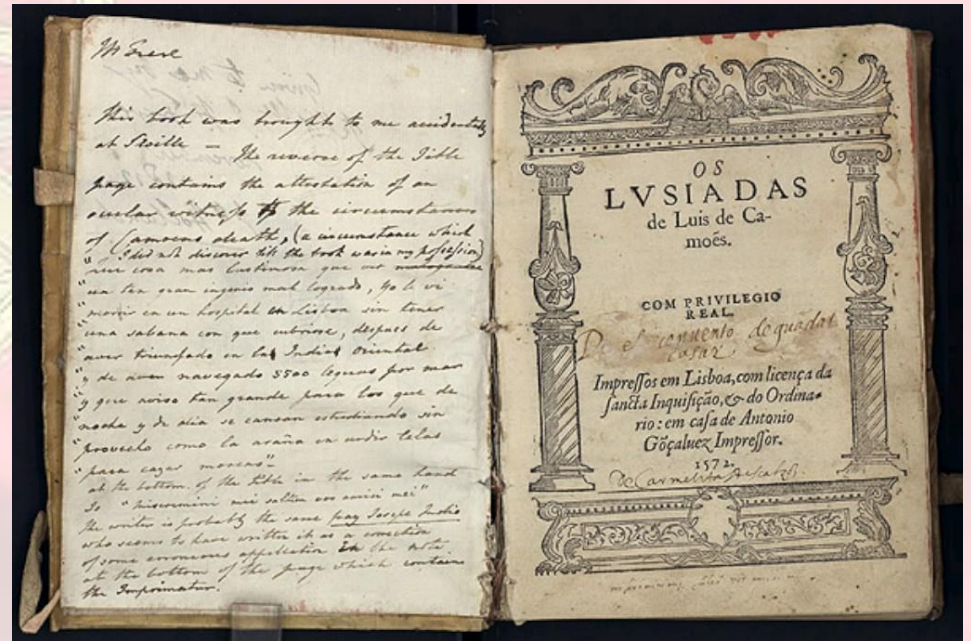 This book was brought to me accidentaly
at Seville — The reverse of the Title
page contains the attestation of an
ocular witness to the circumstances
of Camoens death, (a circumstance which
I did not discover till the book was in my possession)
cosa mas lastimosa que ver
un tan gran ingenio mal logrado, yo le vi
morir en un hospital en Lisboa sin tener
una sabana con que cubrirse, despues de
aver triunfado en la India Oriental
y de aver navegado 5500 leguas por mar
y que aviso tan grande para los que de
noche y de dia se cansan estudiando sin
provecho como la araña en urdir telas
"para cazar moscas"
at the bottom of the Title in the same hand
Is "miseremini mei saltem vos amici mei"
The writer is probably the same fray Josepe Indio
who seems to have written it as a correction
of some erroneous appellation in the note
at the bottom of the page which contains
the Imprimatur.
OS
LVSIADAS
de Luis de Ca-
moẽs.
COM PRIVILEGIO
REAL.
convento de guadal
casar
Impressos em Lisboa, com licença da
sancta Inquisição, & do Ordina-
rio: em casa de Antonio
Gõçaluez Impressor.
1572.